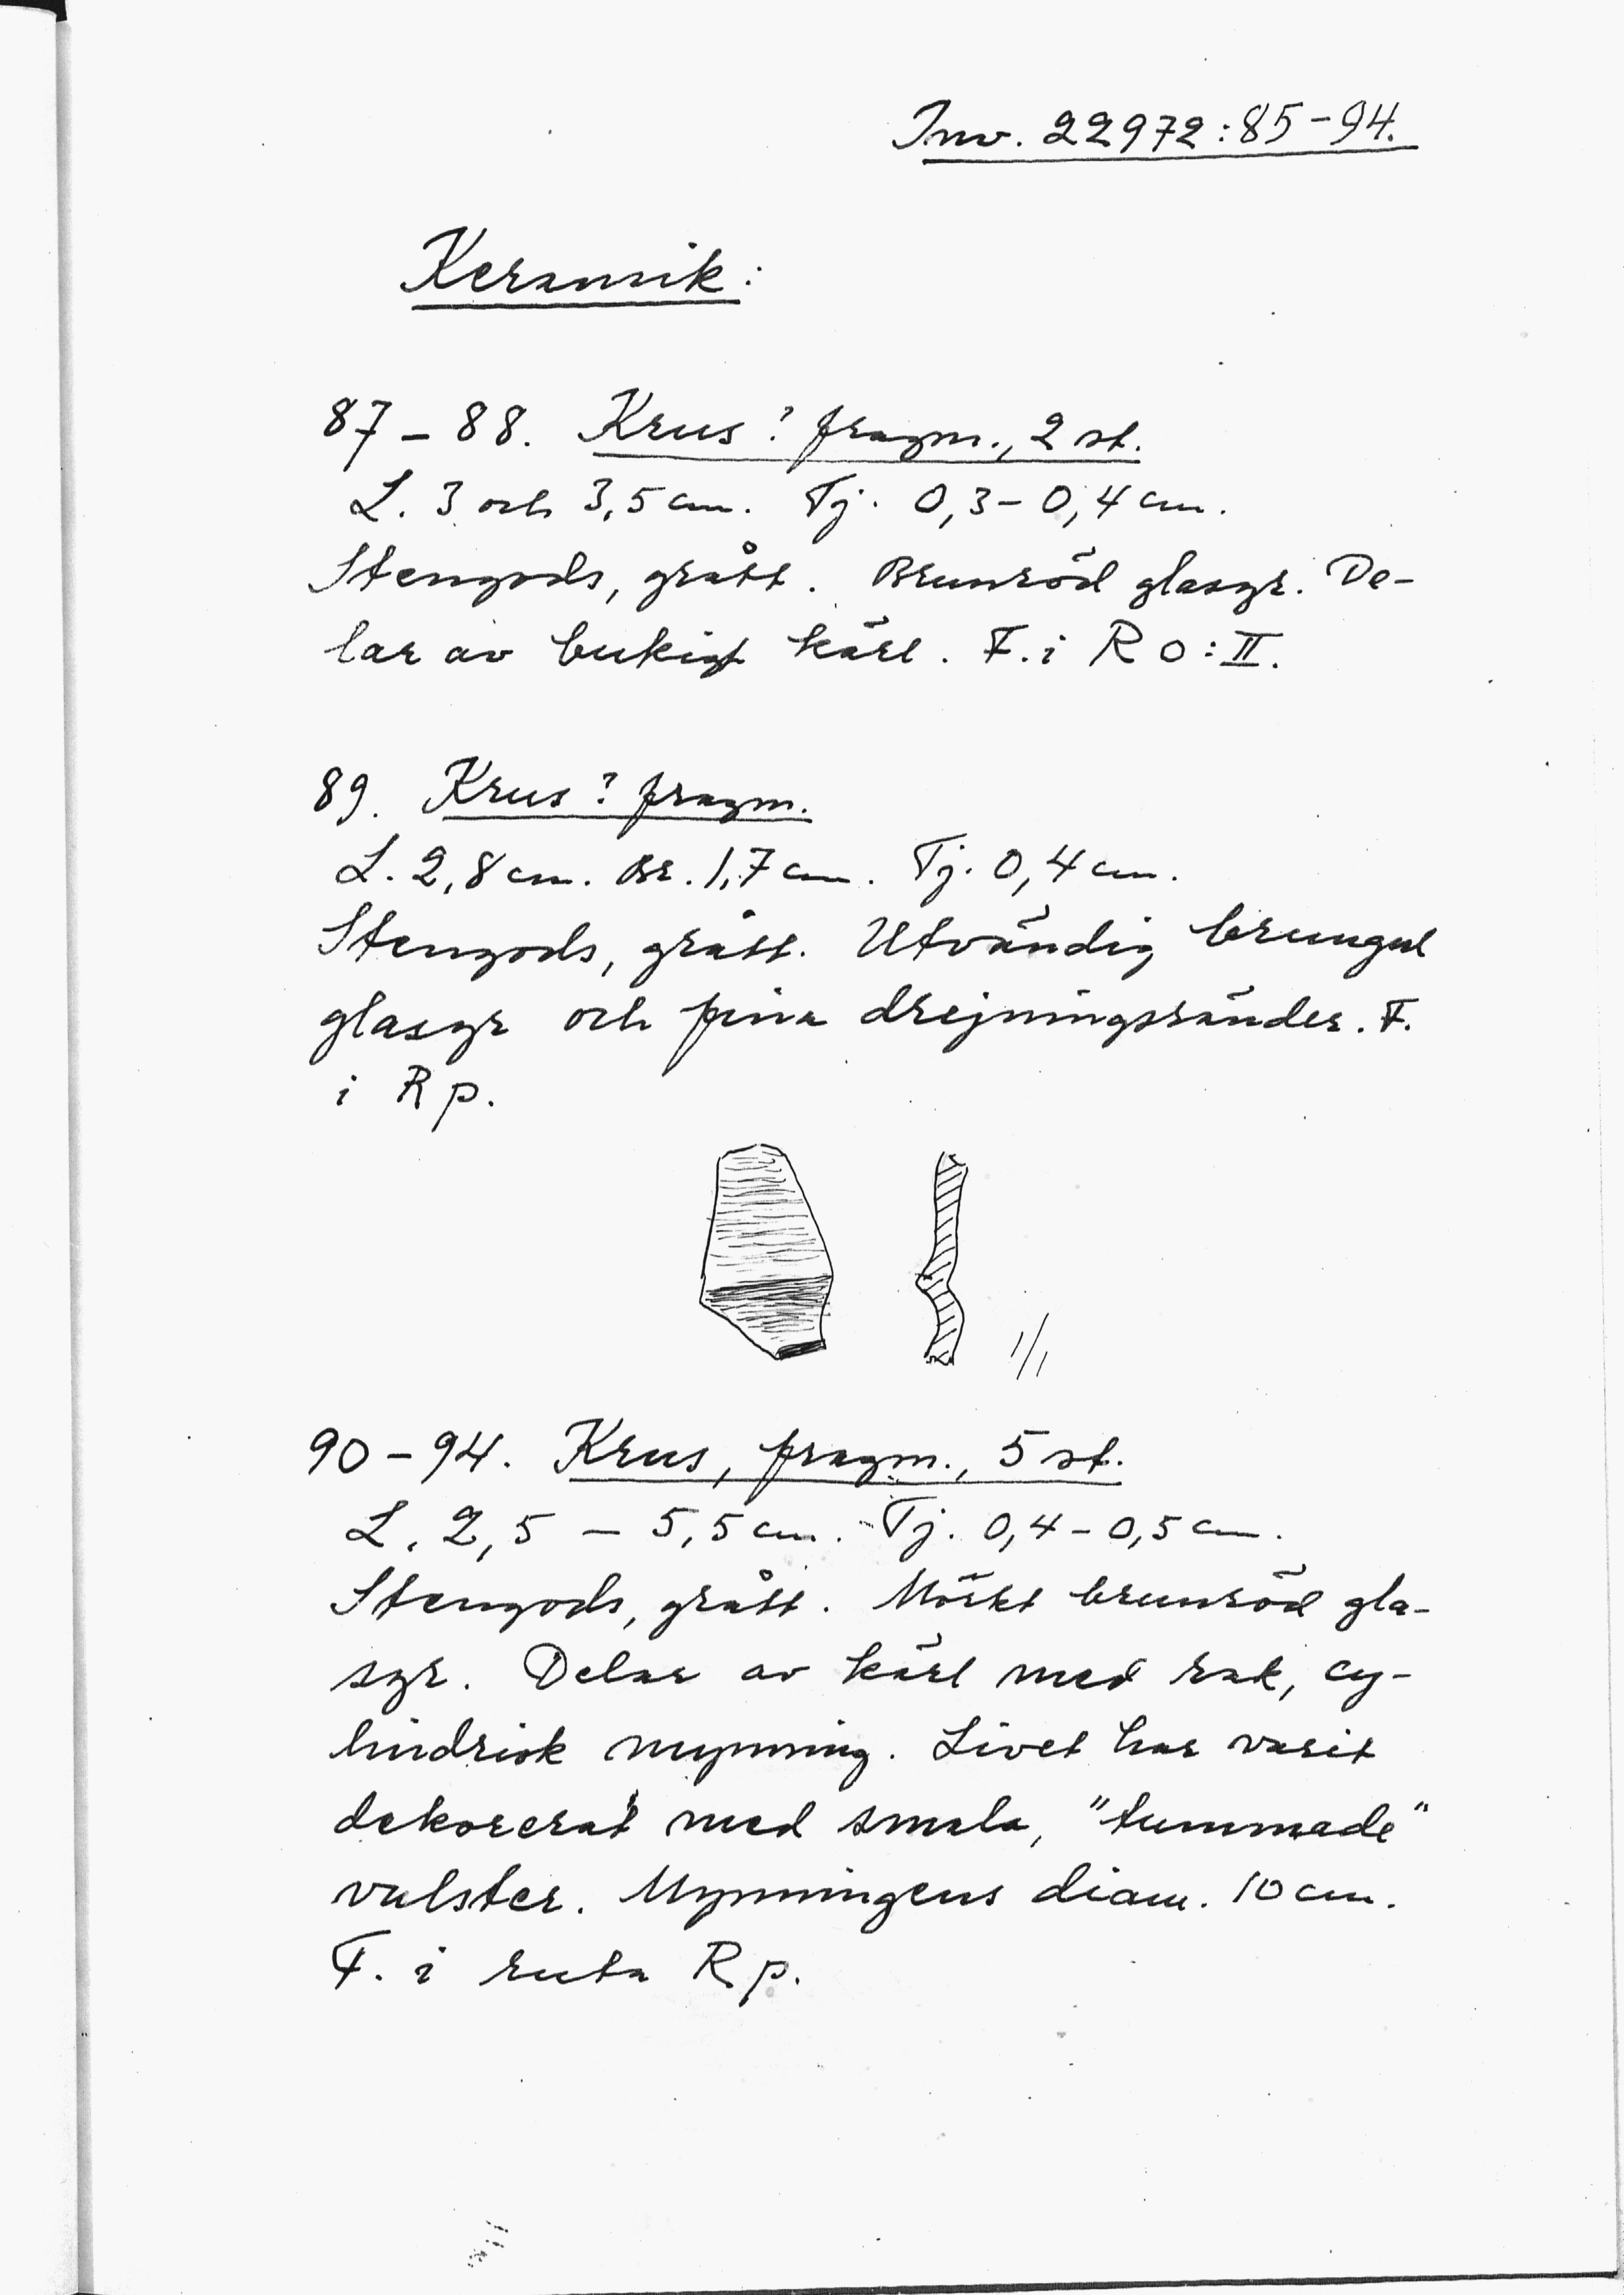 Inv. 22972:85-94.
Keramik:
87-88. Krus? fragm., 2 st.
L. 3 och 3,5 cm. Tj. 0,3-0,4 cm.
Stengods, grått. Brunröd glasyr. De-
lar av bukigt kärl. F. i R O:II.
89. Krus? fragm.
L. 2,8 cm. Br. 1,7 cm. Tj. 0,4 cm.
Stengods, grått. Utvändig brungul
glasyr och fina drejningsränder. F.
i R p.
1/1
90-94. Krus, fragm., 5 st.
L. 2,5 - 5,5 cm. Tj. 0,4-0,5 cm.
Stengods, grått. Mörkt brunröd gla-
syr. Delar av kärl med rak, cy-
lindrisk mynning. Livet har varit
dekorerat med smala, "tummade"
vulster. Mynningens diam. 10 cm.
F. i ruta R p.